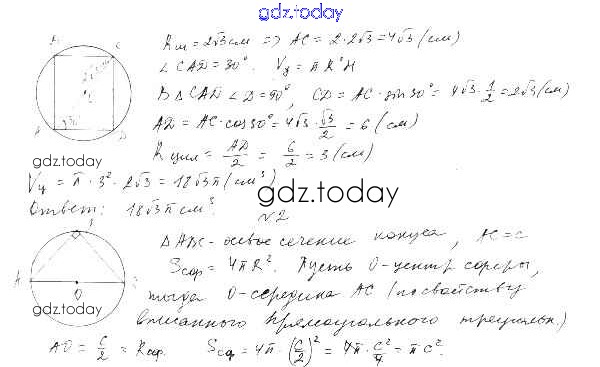 gdz.today
Rш = 2√3 см => AC = 2·2√3 = 4√3 (см)
∠CAD = 30°. Vц = πR²H
В △CAD ∠D = 90°, CD = AC·sin30° = 4√3·1/2 = 2√3 (см)
AD = AC·cos30° = 4√3·√3/2 = 6 (см)
Rцил = AD/2 = 6/2 = 3 (см)
gdz.today
Vц = π·3²·2√3 = 18√3π (см³)
gdz.today
Ответ: 18√3π см³.
№2
△ABC - осевое сечение конуса, AC = c
Sсф = 4πR². Пусть O - центр сферы,
gdz.today
тогда O - середина AC (по свойству
вписанного прямоугольного треугольн.)
AO = c/2 = Rсф. Sсф = 4π·(c/2)² = 4π·c²/4 = πc².